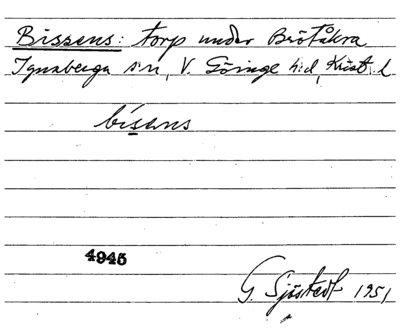 Bissens: torp under Brötåkra
Ignaberga s:n, V. Göinge h:d, Krist. l.
bisens
4945
G. Sjöstedt 1951